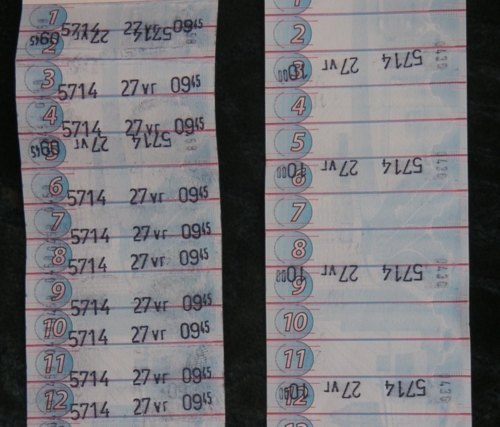 1
5714 27 vr 09 45
2
3
5714 27 vr 09 45
4
5714 27 vr 09 45
5
5714 27 vr 09 45
6
5714 27 vr 09 45
7
5714 27 vr 09 45
8
5714 27 vr 09 45
9
5714 27 vr 09 45
10
5714 27 vr 09 45
11
5714 27 vr 09 45
12
5714 27 vr 09 45
1
2
3
5714 27 vr 10 00
4
5
6
5714 27 vr 10 00
7
8
9
5714 27 vr 10 00
10
11
12
5714 27 vr 10 00